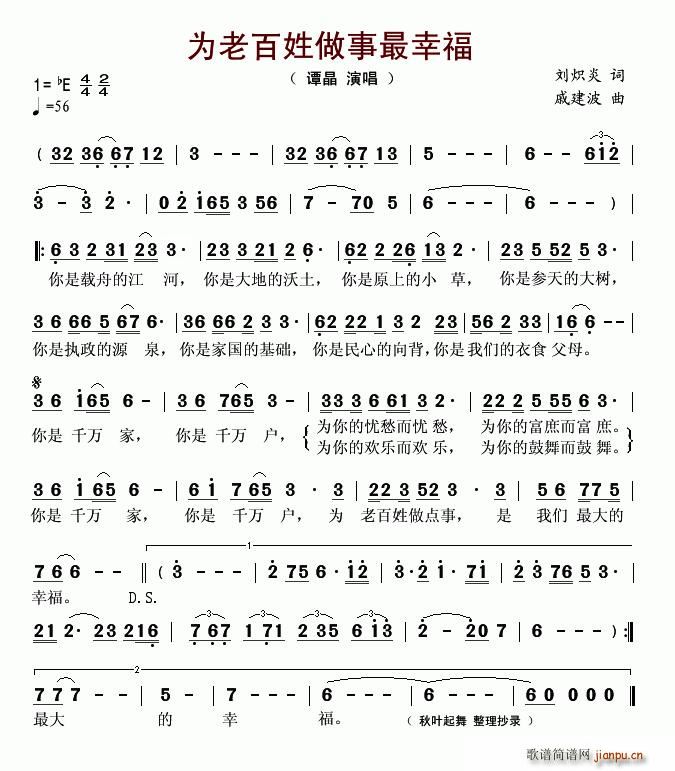 为老百姓做事最幸福
（ 谭晶 演唱 ）
刘炽炎 词
戚建波 曲
1=♭E 4/4 2/4
♩=56
( 32 36 67 12 | 3 - - - | 32 36 67 13 | 5 - - - | 6 - - 612
3 - 3 2· | 02 165 3 56 | 7 - 70 5 | 6 - - - | 6 - - - )
‖: 6 3 2 31 23 3· | 23 3 21 2· 5 | 62 2 26 13 2· | 23 5 52 5 3·
你是载舟的江 河，你是大地的沃土，你是原上的小 草，你是参天的大树，
3 6 66 5 67 6· | 36 66 2 3 3· | 62 22 3 2 23 | 56 2 33 | 16 6 - -
你是执政的源 泉，你是家国的基础，你是民心的向背，你是我们的衣食 父母。
3 6 165 6 - | 3 6 765 3 - | 33 3 6 61 3 2· | 22 2 5 55 6 3·
你是 千万 家， 你是 千万 户， 为你的忧愁而忧 愁， 为你的富庶而富 庶。
为你的欢乐而欢 乐， 为你的鼓舞而鼓 舞。
3 6 165 6 - | 6 7 65 3 3 | 22 3 52 2 - | 5 6 77 5
你是 千万 家， 你是 千万 户， 为 老百姓做点事， 是 我们 最大的
1
7 6 6 - - ‖ ( 3 - - - | 2 75 6 - | 3· 2 1· 71 | 2 12 35 3·
幸福。 D.S.
21 2· 23 216 | 7 67 1 71 2 35 6 13 | 2 - 20 7 | 6 - - ) :‖
2
7 7 7 - | 5 - - - | 6 - - - | 6 - - - | 6 0 0 0 ‖
最大 的 幸 福。 （ 秋叶起舞 整理抄录 ）
歌谱简谱网
jianpu.cn